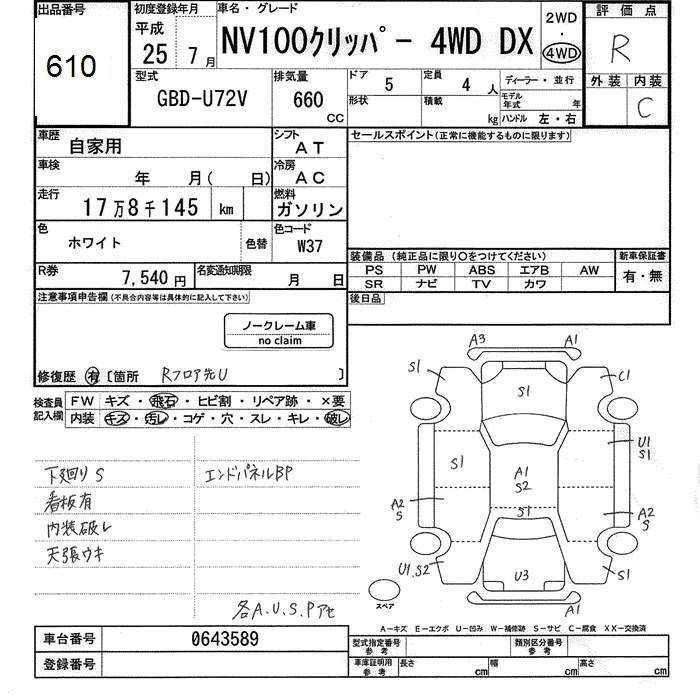 出品番号
610
初度登録年月
平成
25 7月
車名・グレード
NV100クリッパー 4WD DX
2WD
・
4WD
評価点
R
外装 内装
C
型式
GBD-U72V
排気量
660
CC
ドア 5
定員 4 人
ディーラー・並行
形状
積載 kg
モデル年式 年
ハンドル 左・右
車歴
自家用
シフト
AT
車検
年 月( 日)
冷房
AC
走行
17万8千145 km
燃料
ガソリン
色
ホワイト
色替
色コード
W37
R券
7,540円
名変通知期限
月 日
セールスポイント(正常に機能するものに限ります)
装備品(純正品に限り〇をつけてください)
新車保証書
PS PW ABS エアB AW
有・無
SR ナビ TV カワ
後日品
注意事項申告欄(不具合内容等は具体的に記入して下さい)
ノークレーム車
no claim
修復歴 有 〔箇所 Rフロア先U 〕
検査員記入欄
FW キズ・飛石・ヒビ割・リペア跡・×要
内装 キズ・汚レ・コゲ・穴・スレ・キレ・破レ
下廻りS
エンドパネルBP
看板有
内装破レ
天張ウキ
各A.U.S.Pアセ
A3
A1
S1
C1
S1
U1
S1
S1
A1
S2
A2
S
S1
A2
S
U1.S2
U3
S1
A1
スペア
A-キズ E-エクボ U-凹み W-補修跡 S-サビ C-腐食 XX-交換済
車台番号
0643589
登録番号
型式指定番号
参考
類別区分番号
参考
車庫証明用
参考
長さ cm
幅 cm
高さ cm